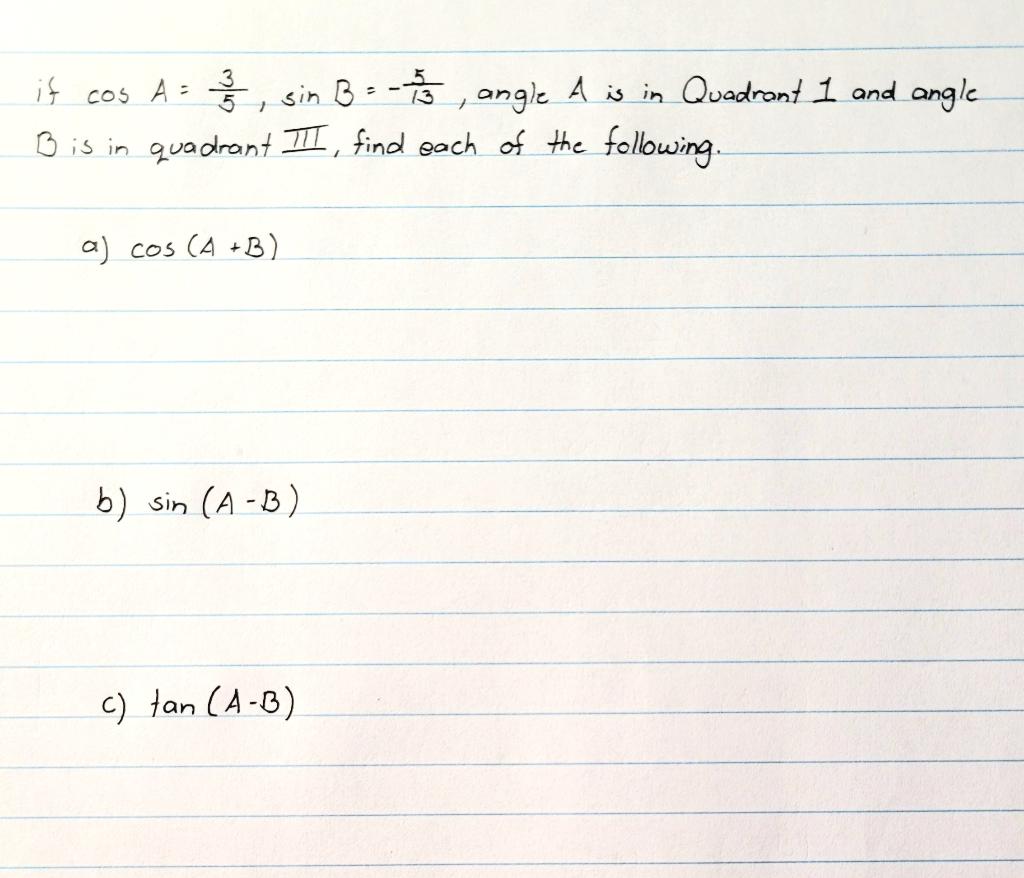 if cos A = 3/5, sin B = -5/13, angle A is in Quadrant 1 and angle
B is in quadrant III, find each of the following.
a) cos (A + B)
b) sin (A - B)
c) tan (A - B)